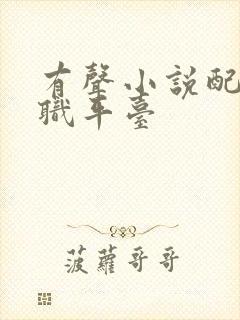 有聲小說配
職平臺
菠蘿哥哥